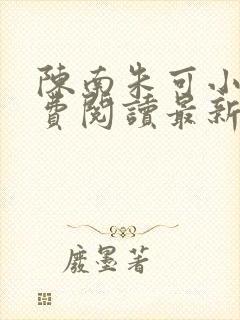 陳南朱可小
費閱讀最新
廢墨著